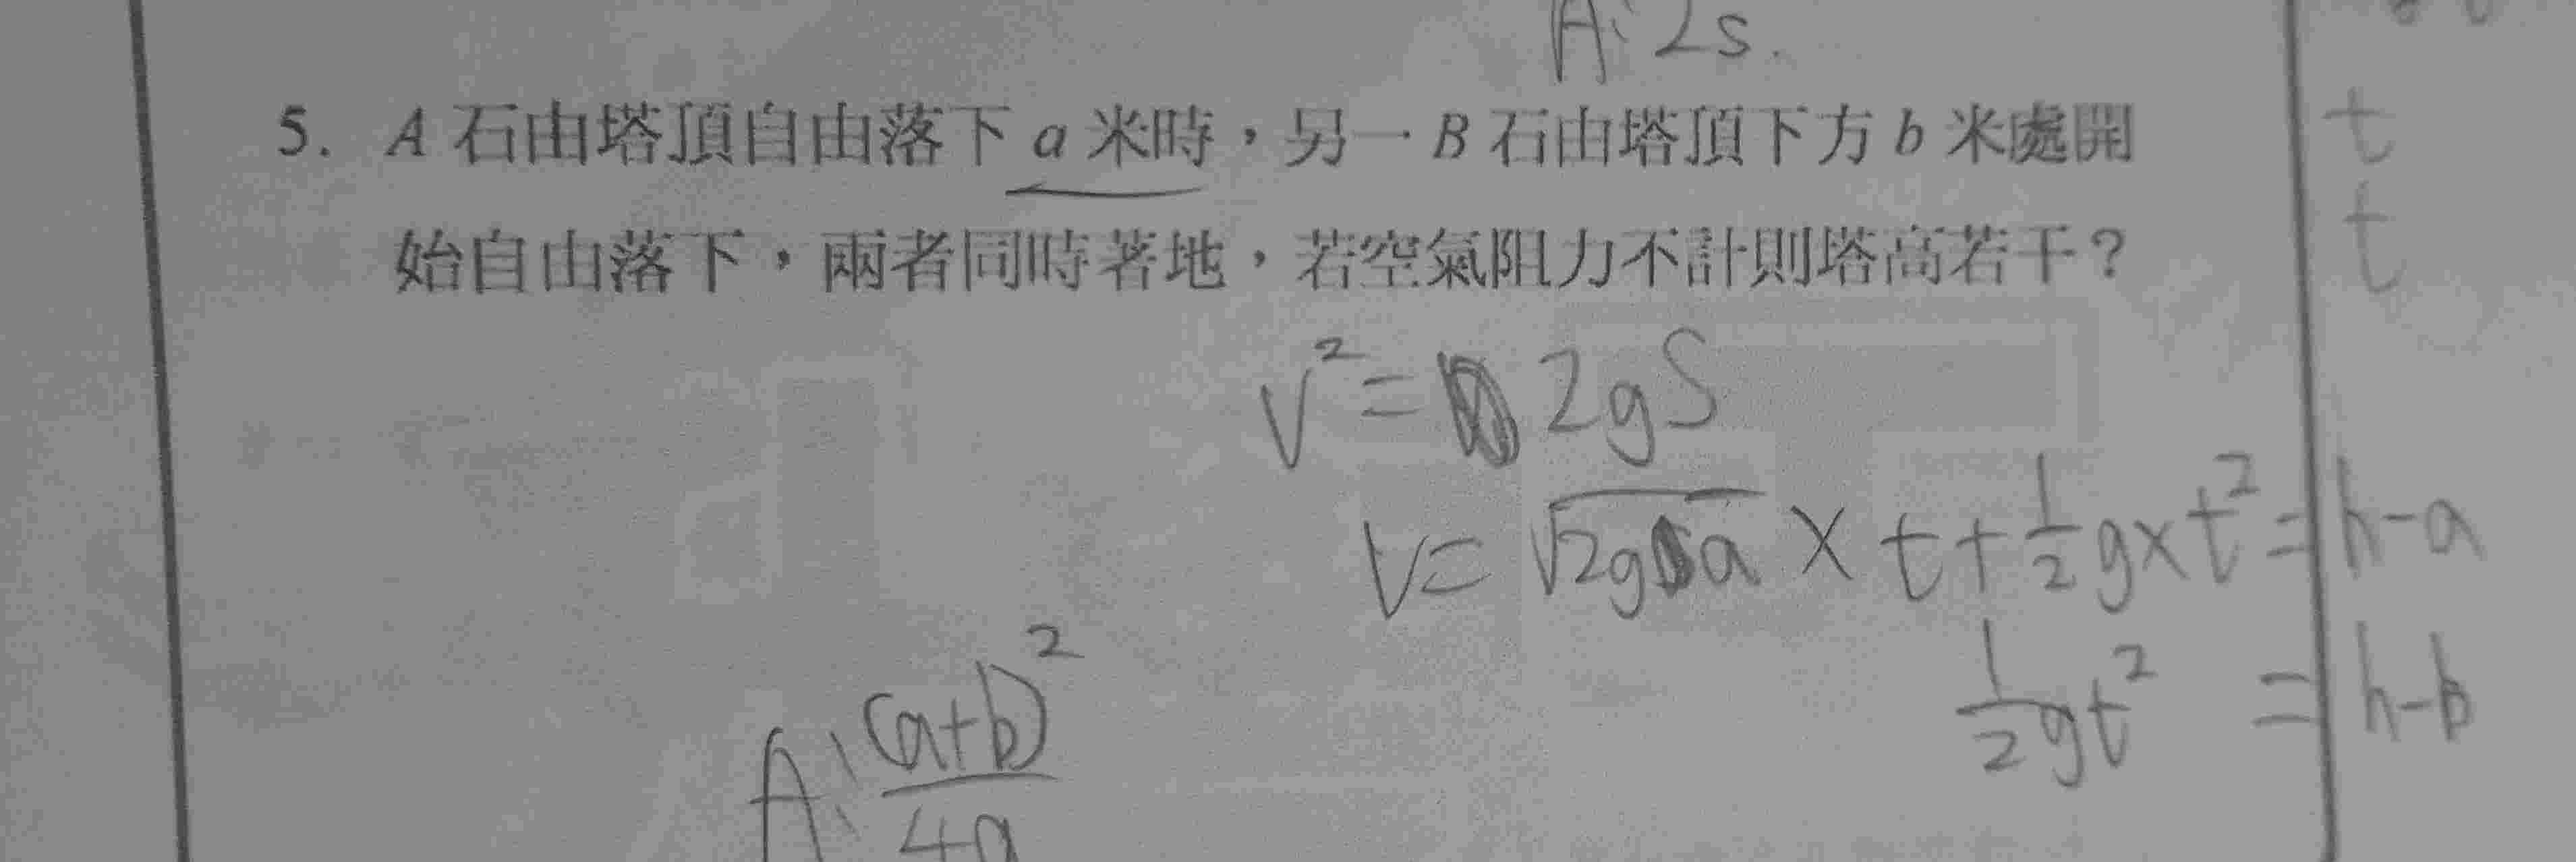 A: 2s.
5. A 石由塔頂自由落下 a 米時，另一 B 石由塔頂下方 b 米處開
始自由落下，兩者同時著地，若空氣阻力不計則塔高若干？
t
t
v² = 2gS
v = √2ga × t + 1/2 g × t² = h - a
1/2 gt² = h - b
A: (a+b)²/4a